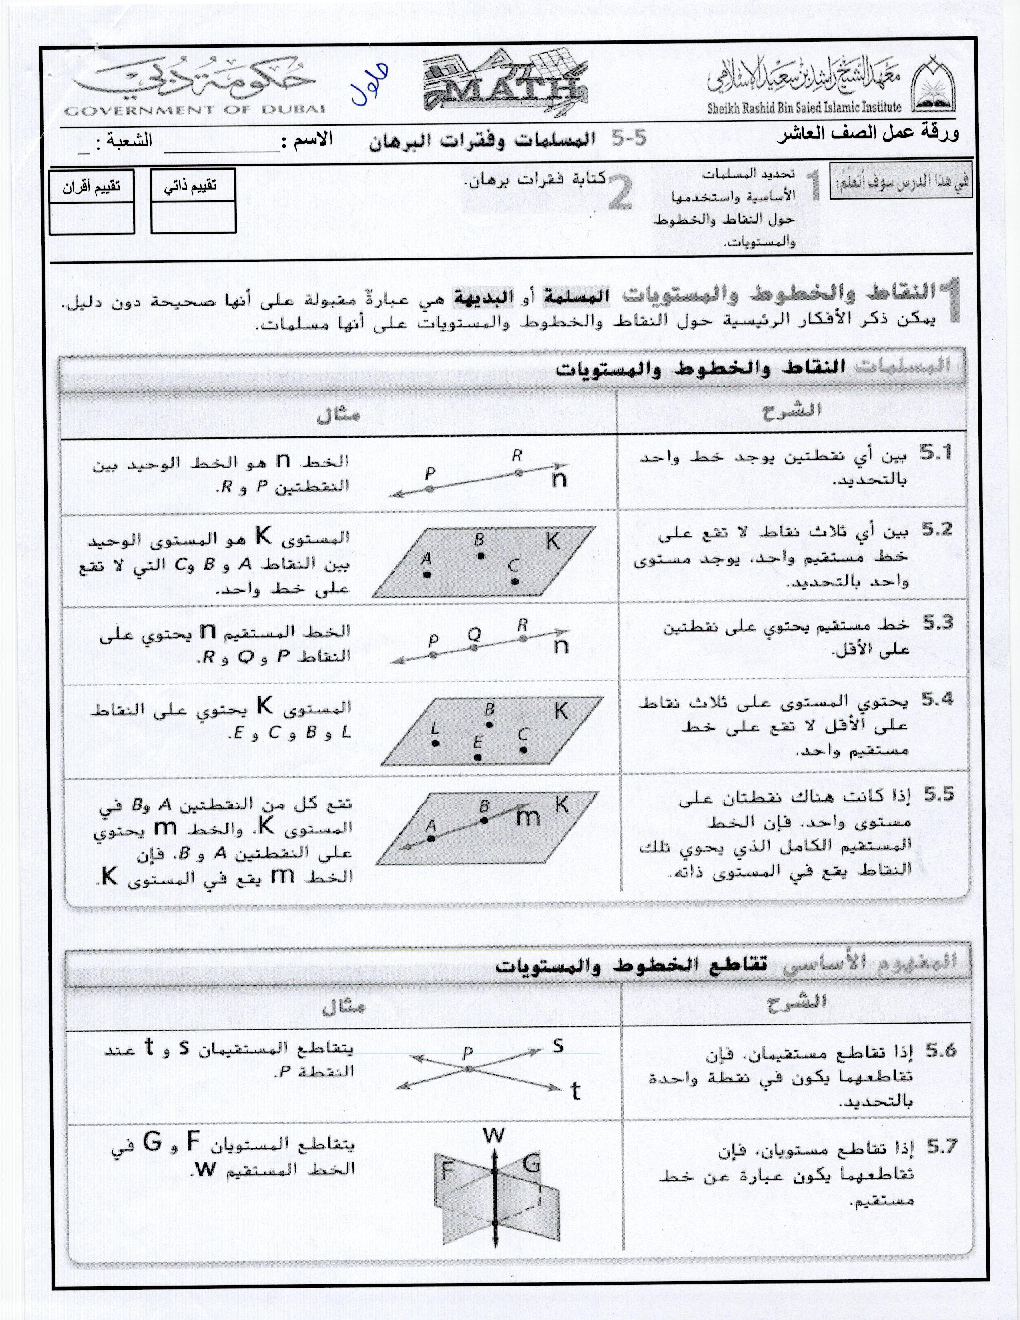 حكومة دبي
GOVERNMENT OF DUBAI
حلول
MATH
معهد الشيخ راشد بن سعيد الإسلامي
Sheikh Rashid Bin Saied Islamic Institute
ورقة عمل الصف العاشر
5-5 المسلمات وفقرات البرهان
الاسم :
الشعبة :
في هذا الدرس سوف أتعلم:
1 تحديد المسلمات
الأساسية واستخدمها
حول النقاط والخطوط
والمستويات.
2 كتابة فقرات برهان.
تقييم ذاتي
تقييم أقران
1 النقاط والخطوط والمستويات المسلمة أو البديهة هي عبارةٌ مقبولة على أنها صحيحة دون دليل.
يمكن ذكر الأفكار الرئيسية حول النقاط والخطوط والمستويات على أنها مسلمات.
المسلمات النقاط والخطوط والمستويات
الشرح
مثال
5.1 بين أي نقطتين يوجد خط واحد
بالتحديد.
P R n
الخط n هو الخط الوحيد بين
النقطتين P و R.
5.2 بين أي ثلاث نقاط لا تقع على
خط مستقيم واحد، يوجد مستوى
واحد بالتحديد.
A B C K
المستوى K هو المستوى الوحيد
بين النقاط A و B وC التي لا تقع
على خط واحد.
5.3 خط مستقيم يحتوي على نقطتين
على الأقل.
P Q R n
الخط المستقيم n يحتوي على
النقاط P و Q و R.
5.4 يحتوي المستوى على ثلاث نقاط
على الأقل لا تقع على خط
مستقيم واحد.
L B E C K
المستوى K يحتوي على النقاط
L و B و C و E.
5.5 إذا كانت هناك نقطتان على
مستوى واحد، فإن الخط
المستقيم الكامل الذي يحوي تلك
النقاط يقع في المستوى ذاته.
A B m K
تقع كل من النقطتين A وB في
المستوى K، والخط m يحتوي
على النقطتين A و B، فإن
الخط m يقع في المستوى K.
المفهوم الأساسي تقاطع الخطوط والمستويات
الشرح
مثال
5.6 إذا تقاطع مستقيمان، فإن
تقاطعهما يكون في نقطة واحدة
بالتحديد.
P s t
يتقاطع المستقيمان s و t عند
النقطة P.
5.7 إذا تقاطع مستويان، فإن
تقاطعهما يكون عبارة عن خط
مستقيم.
W F G
يتقاطع المستويان F و G في
الخط المستقيم w.